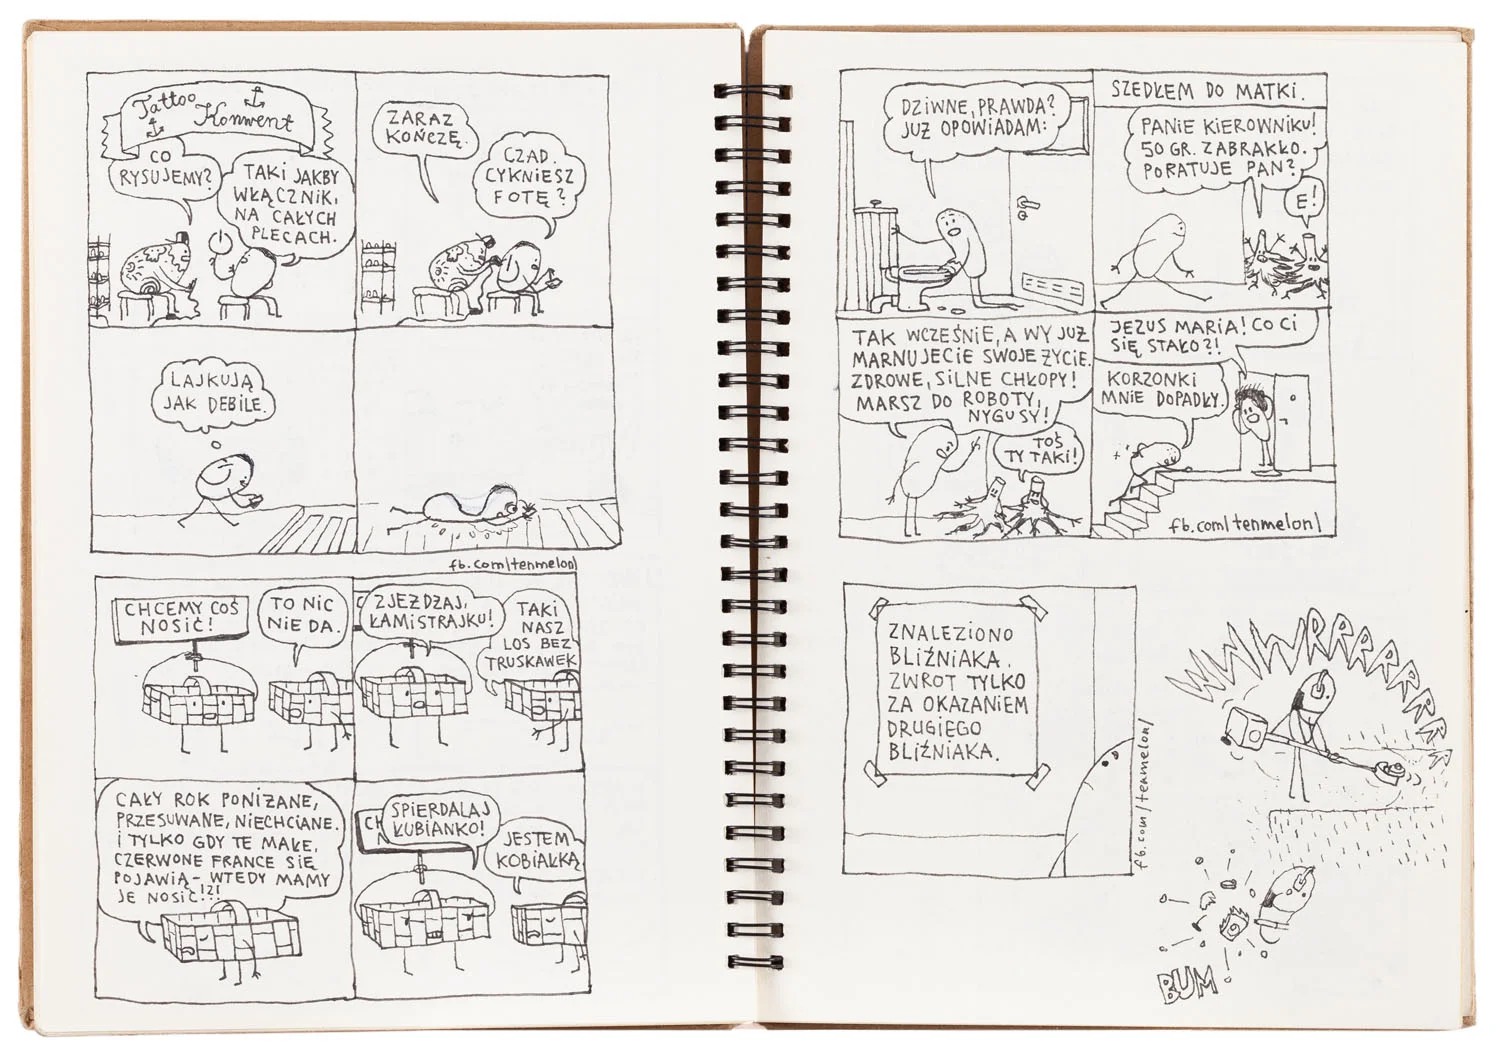 Tattoo
Konwent
CO
RYSUJEMY?
TAKI JAKBY
WŁĄCZNIK,
NA CAŁYCH
PLECACH.
ZARAZ
KOŃCZĘ.
CZAD.
CYKNIESZ
FOTĘ?
LAJKUJĄ
JAK DEBILE.
fb.com/tenmelon/
CHCEMY COŚ
NOSIĆ!
TO NIC
NIE DA.
ZJEŻDZAJ,
ŁAMISTRAJKU!
TAKI
NASZ
LOS BEZ
TRUSKAWEK
CAŁY ROK PONIŻANE,
PRZESUWANE, NIECHCIANE.
I TYLKO GDY TE MAŁE,
CZERWONE FRANCE SIĘ
POJAWIĄ - WTEDY MAMY
JE NOSIĆ!?!
CH
N
SPIERDALAJ
ŁUBIANKO!
JESTEM
KOBIAŁKĄ
DZIWNE, PRAWDA?
JUŻ OPOWIADAM:
SZEDŁEM DO MATKI.
PANIE KIEROWNIKU!
50 GR. ZABRAKŁO.
PORATUJE PAN?
E!
TAK WCZEŚNIE, A WY JUŻ
MARNUJECIE SWOJE ŻYCIE.
ZDROWE, SILNE CHŁOPY!
MARSZ DO ROBOTY,
NYGUSY!
TOŚ
TY TAKI!
JEZUS MARIA! CO CI
SIĘ STAŁO?!
KORZONKI
MNIE DOPADŁY.
fb.com/tenmelon/
ZNALEZIONO
BLIŹNIAKA.
ZWROT TYLKO
ZA OKAZANIEM
DRUGIEGO
BLIŹNIAKA.
fb.com/tenmelon/
WWWRRRRRRRRR
BUM!